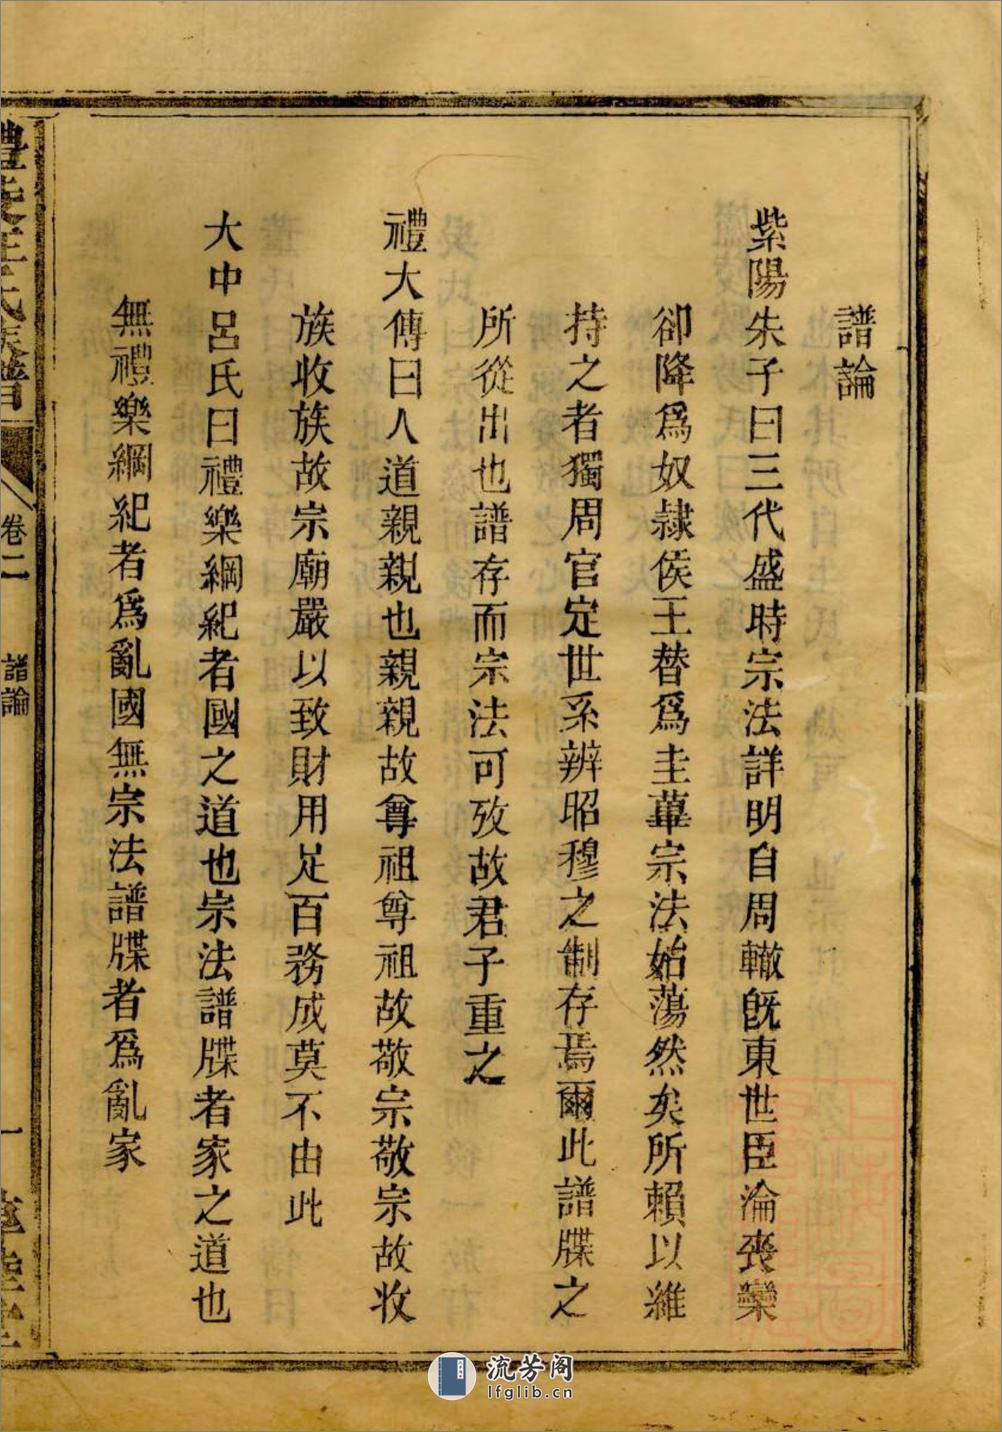 譜論
紫陽朱子曰三代盛時宗法詳明自周轍旣東世臣淪喪欒
卻降爲奴隷侯王替爲圭蓽宗法始蕩然矣所賴以維
持之者獨周官定世系辨昭穆之制存焉爾此譜牒之
所從出也譜存而宗法可攷故君子重之
禮大傳曰人道親親也親親故尊祖尊祖故敬宗敬宗故收
族收族故宗廟嚴以致財用足百務成莫不由此
大中呂氏曰禮樂綱紀者國之道也宗法譜牒者家之道也
無禮樂綱紀者爲亂國無宗法譜牒者爲亂家
氏族譜
卷二
譜論
一
流芳阁
lfglib.cn